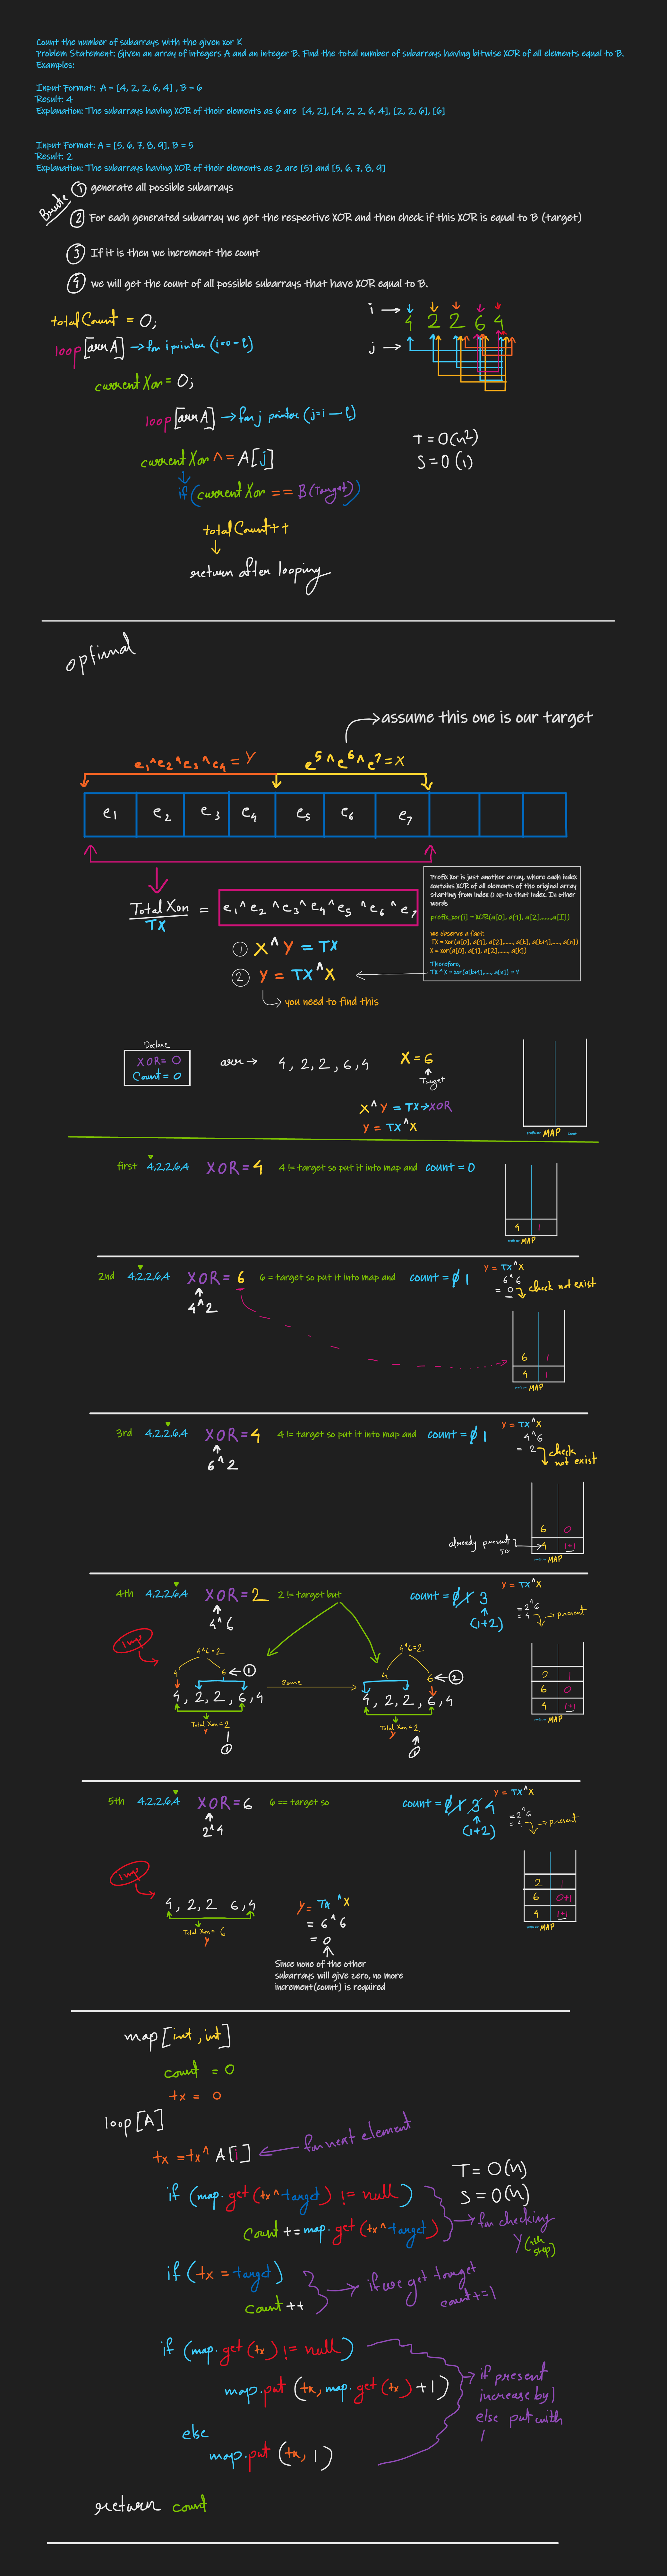 Count the number of subarrays with the given xor K
Problem Statement: Given an array of integers A and an integer B. Find the total number of subarrays having bitwise XOR of all elements equal to B.
Examples:
Input Format: A = [4, 2, 2, 6, 4] , B = 6
Result: 4
Explanation: The subarrays having XOR of their elements as 6 are [4, 2], [4, 2, 2, 6, 4], [2, 2, 6], [6]
Input Format: A = [5, 6, 7, 8, 9], B = 5
Result: 2
Explanation: The subarrays having XOR of their elements as 2 are [5] and [5, 6, 7, 8, 9]
Brute
① generate all possible subarrays
② For each generated subarray we get the respective XOR and then check if this XOR is equal to B (target)
③ If it is then we increment the count
④ we will get the count of all possible subarrays that have XOR equal to B.
i →
4 2 2 6 4
j →
totalCount = 0;
loop [arr A] → for i pointer (i=0 - l)
currentXor = 0;
loop [arr A] → for j pointer (j=i - l)
currentXor ^= A[j]
if (currentXor == B(Target))
totalCount++
return after looping
T = O(n²)
S = O(1)
optimal
assume this one is our target
e1^e2^e3^e4 = Y
e5^e6^e7 = X
e1 e2 e3 e4 e5 e6 e7
Total Xor = e1^e2^e3^e4^e5^e6^e7
TX
① X^Y = TX
② Y = TX^X
you need to find this
Prefix Xor is just another array, where each index
contains XOR of all elements of the original array
starting from index 0 up to that index. In other
words
prefix_xor[i] = XOR(a[0], a[1], a[2],......,a[i])
we observe a fact:
TX = xor(a[0], a[1], a[2],......, a[k], a[k+1],....., a[n])
X = xor(a[0], a[1], a[2],......, a[k])
Therefore,
TX ^ X = xor(a[k+1],....., a[n]) = Y
Declare
XOR = 0
Count = 0
arr → 4, 2, 2, 6, 4
X = 6
Target
X^Y = TX → XOR
Y = TX^X
MAP
first 4,2,2,6,4 XOR = 4 4 != target so put it into map and count = 0
4 1
MAP
2nd 4,2,2,6,4 XOR = 6 6 = target so put it into map and count = 0 1
4^2
Y = TX^X
6^6
= 0 check not exist
6 1
4 1
MAP
3rd 4,2,2,6,4 XOR = 4 4 != target so put it into map and count = 0 1
6^2
Y = TX^X
4^6
= 2 check
not exist
already present
so
6 0
4 1+1
MAP
4th 4,2,2,6,4 XOR = 2 2 != target but count = 0 1 3
4^6
(1+2)
Y = TX^X
= 2^6
= 4 → present
imp
4^6=2
4 6 ← ①
4, 2, 2, 6, 4
Total Xor = 2
Y
①
Same
4^6=2
4 6 ← ②
4, 2, 2, 6, 4
Total Xor = 2
Y
2 1
6 0
4 1+1
MAP
5th 4,2,2,6,4 XOR = 6 6 == target so count = 0 1 3 4
2^4
(1+2)
Y = TX^X
= 2^6
= 4 → present
imp
4, 2, 2 6, 4
Total Xor = 6
Y
Y = TX^X
= 6^6
= 0
Since none of the other
subarrays will give zero, no more
increment(count) is required
2 1
6 0+1
4 1+1
MAP
map [int, int]
count = 0
tx = 0
loop [A]
tx = tx^ A[i] ← for next element
if (map.get(tx^target) != null)
count += map.get(tx^target)
for checking
Y
if (tx = target)
count++
if we get target
count+=1
T = O(n)
S = O(n)
if (map.get(tx) != null)
map.put (tx, map.get(tx) + 1)
else
map.put (tx, 1)
if present
increase by 1
else put with
1
return count